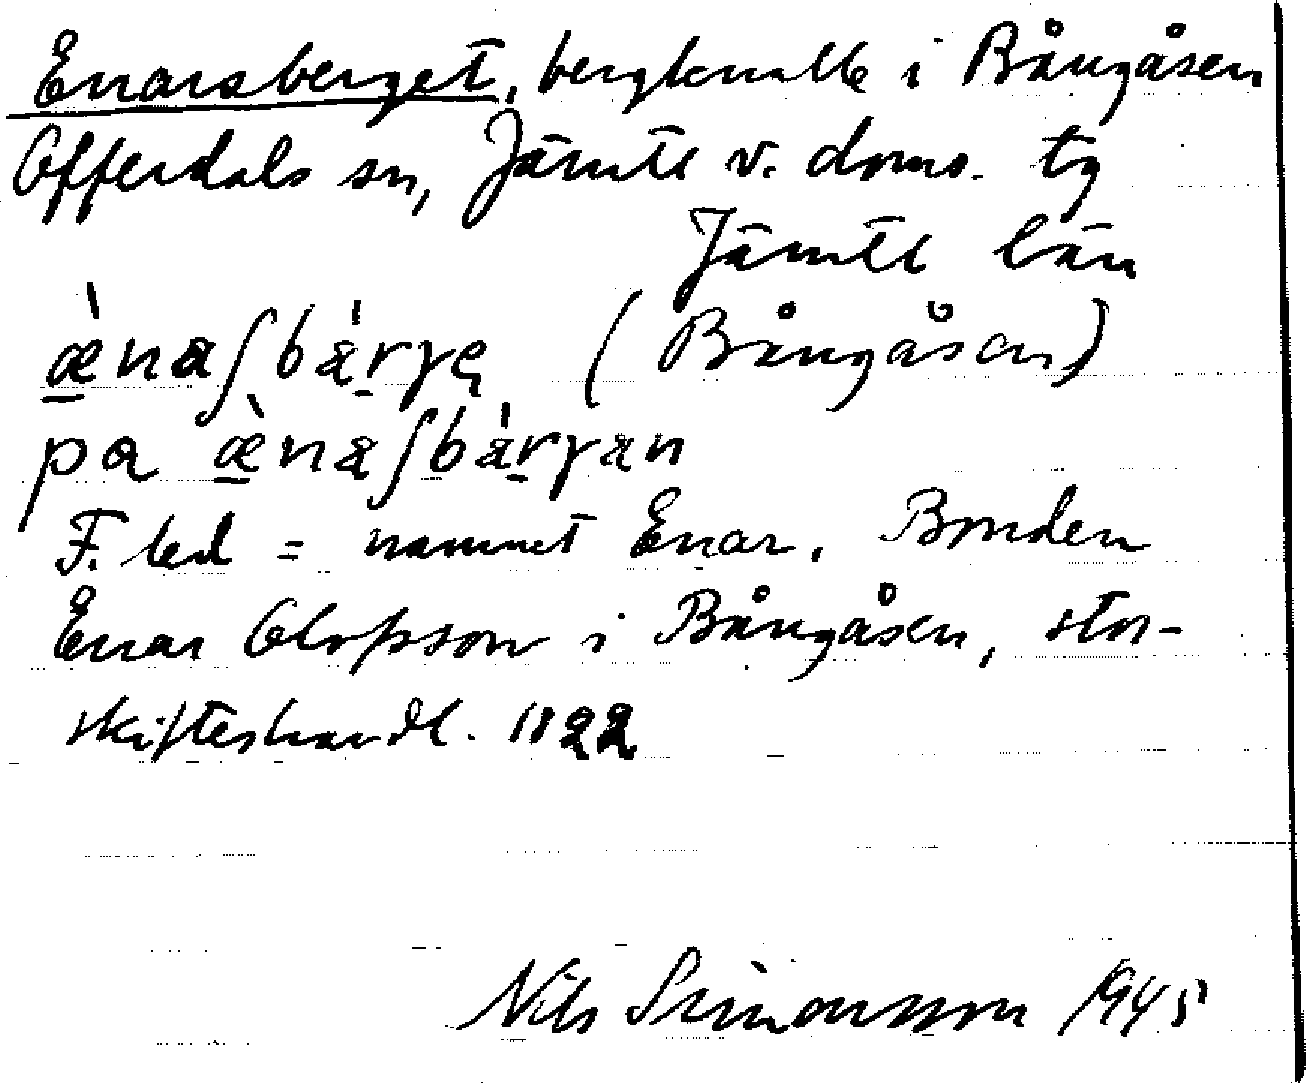 Enarsberget, bergknalle i Bångåsen
Offerdals sn, Jämtl v. doms. tg
Jämtl län
æ̀naʃbárγe̜ (Bångåsen)
pa æ̀naʃbárγan
F. led = namnet Enar. Bonden
Enar Olofsson i Bångåsen, stor-
skifteshandl. 1822
Nils Simonsson 1945